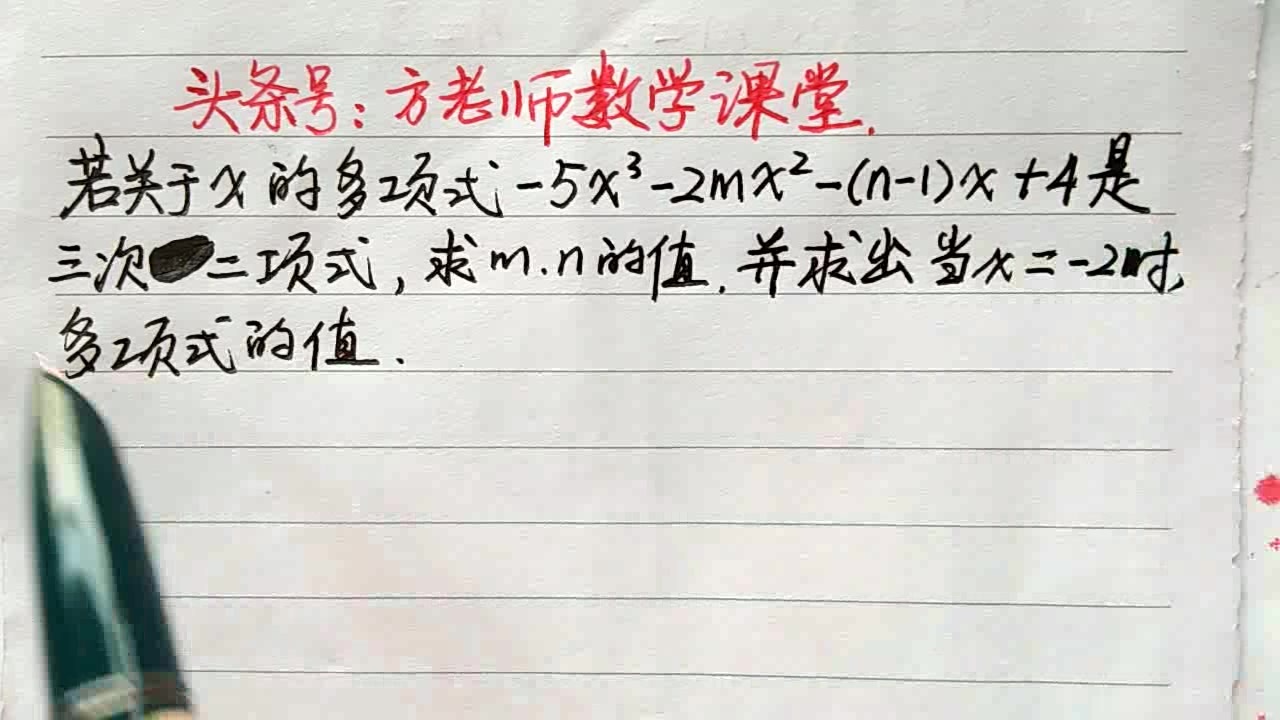 头条号:方老师数学课堂.
若关于x的多项式-5x³-2mx²-(n-1)x+4是
三次二项式,求m.n的值.并求出当x=-2时,
多项式的值.